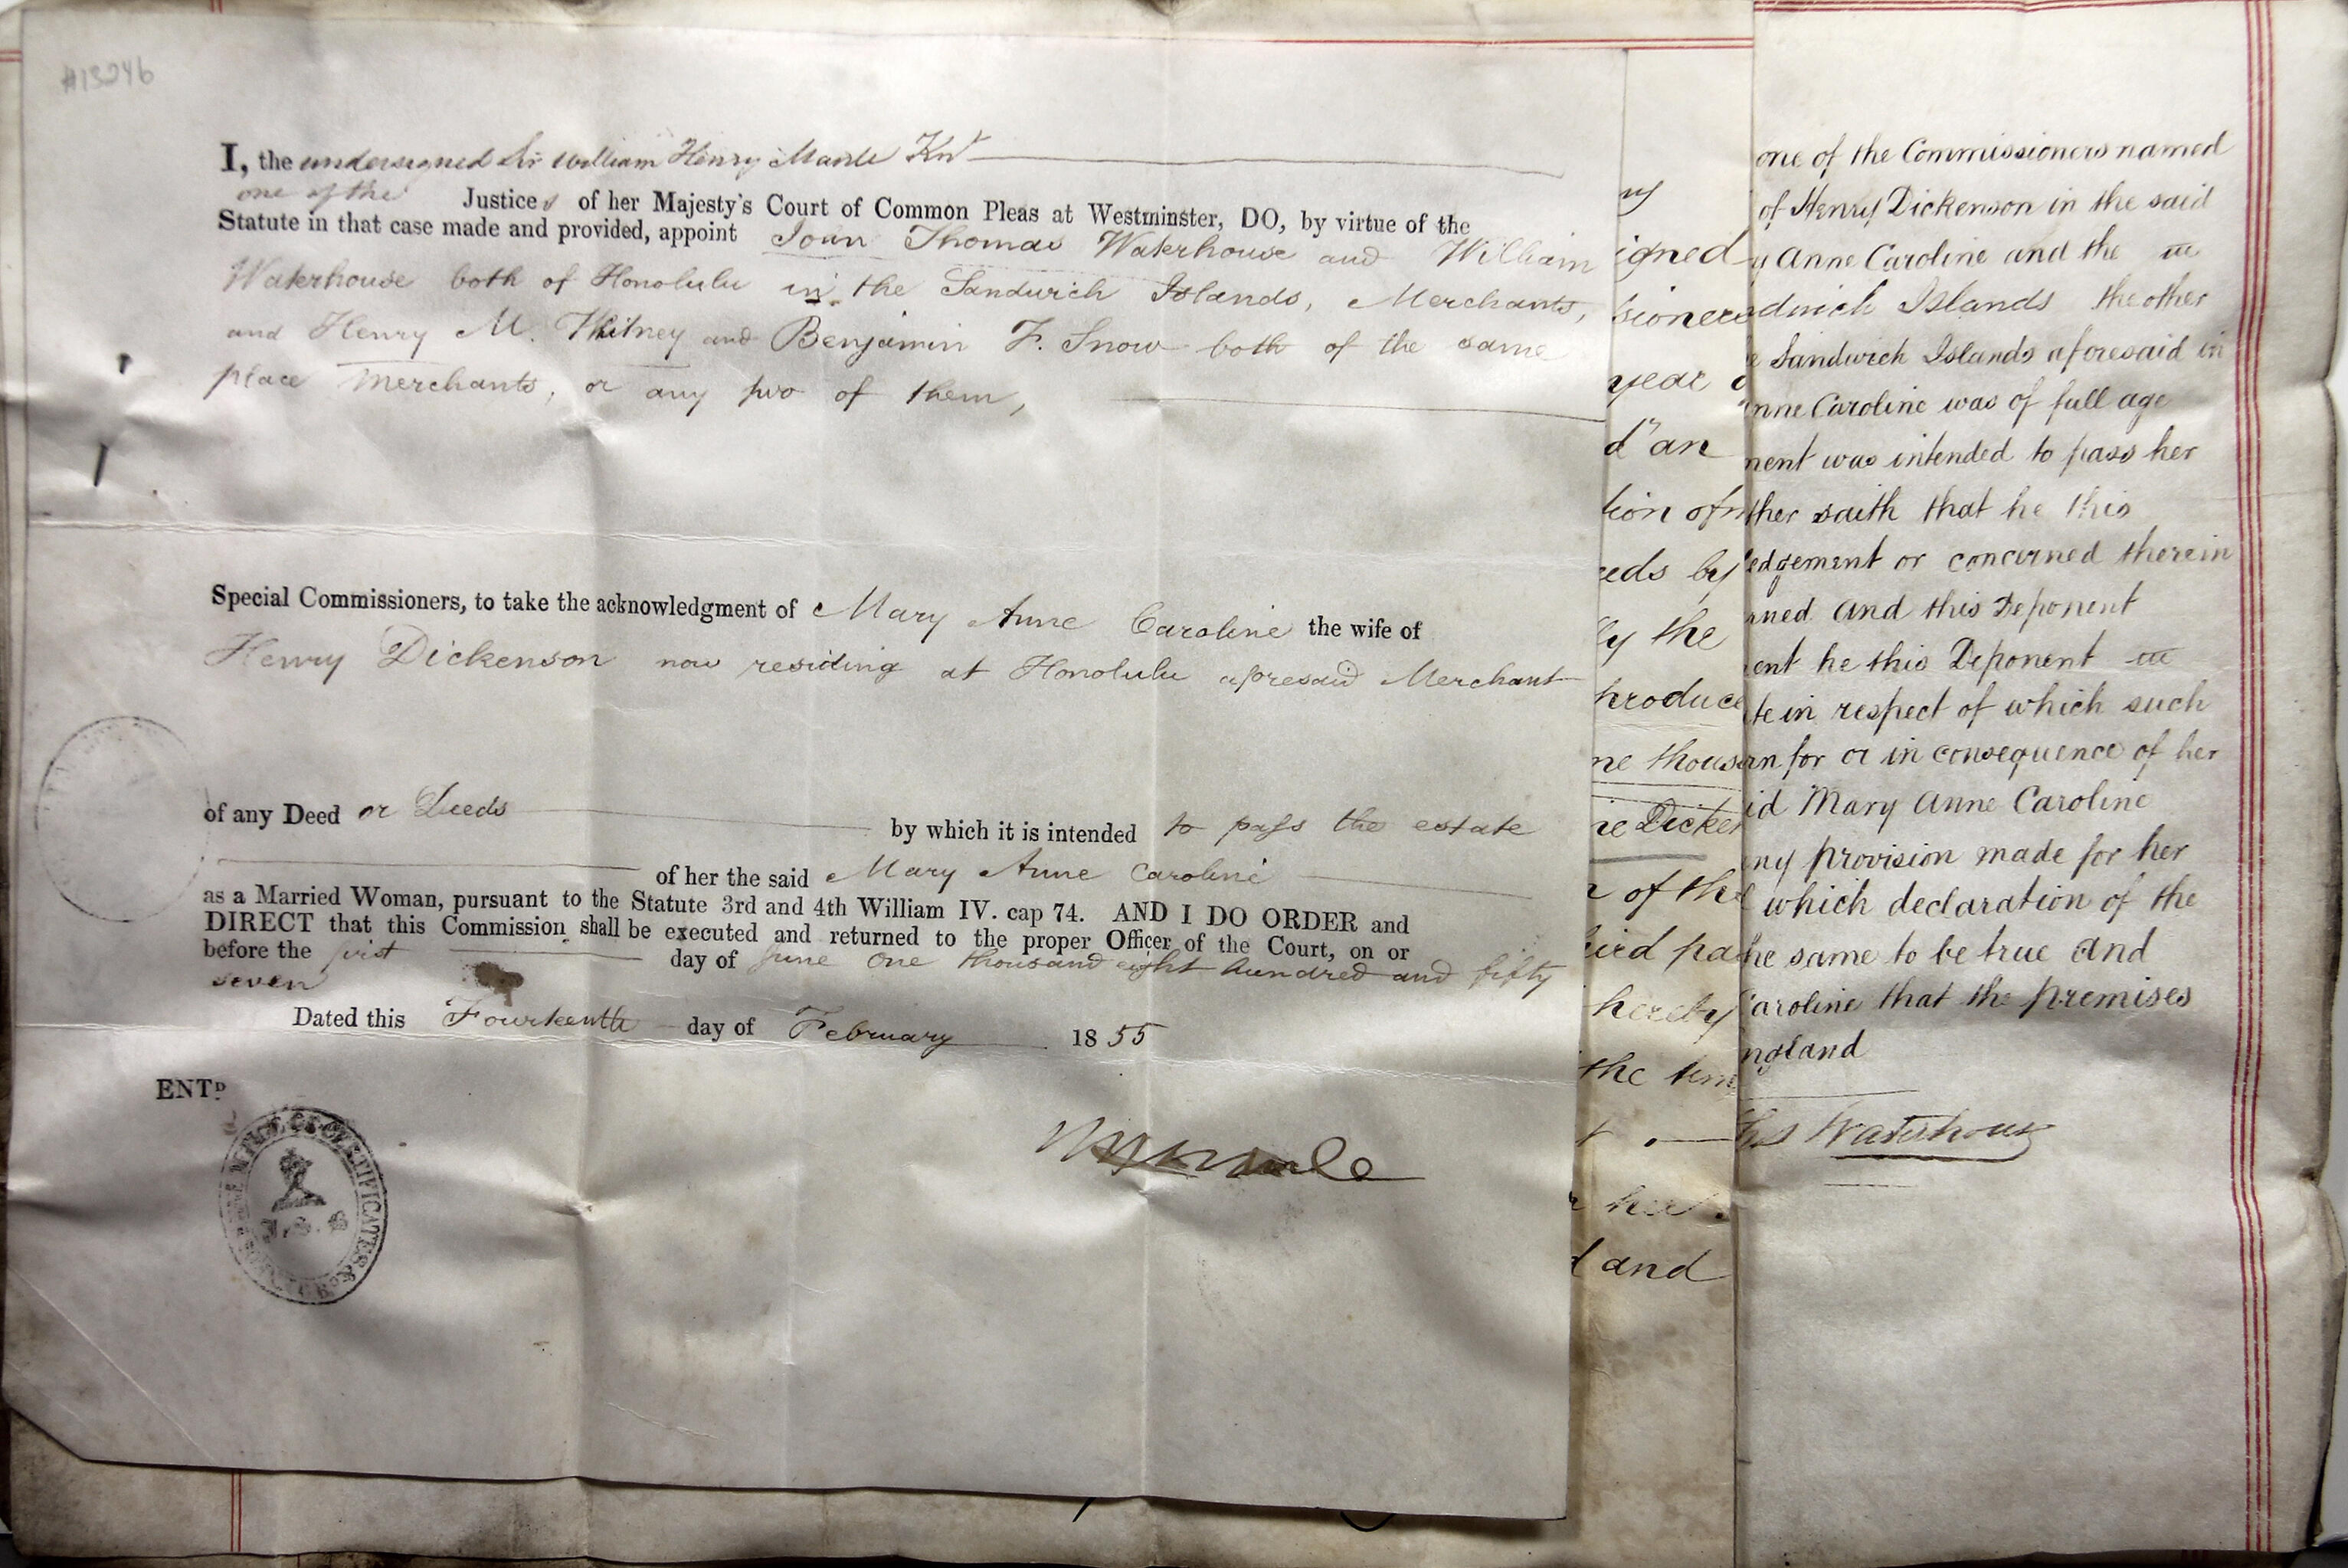 #13246
I, the undersigned Sir William Henry Maule Knt
one of the Justices of her Majesty's Court of Common Pleas at Westminster, DO, by virtue of the
Statute in that case made and provided, appoint John Thomas Waterhouse and William
Waterhouse both of Honolulu in the Sandwich Islands, Merchants,
and Henry M. Whitney and Benjamin F. Snow both of the same
place Merchants, or any two of them,
Special Commissioners, to take the acknowledgment of Mary Anne Caroline the wife of
Henry Dickenson now residing at Honolulu aforesaid Merchant
of any Deed or Deeds by which it is intended to pass the estate
of her the said Mary Anne Caroline
as a Married Woman, pursuant to the Statute 3rd and 4th William IV. cap 74. AND I DO ORDER and
DIRECT that this Commission shall be executed and returned to the proper Officer of the Court, on or
before the first day of June One thousand eight hundred and fifty
seven
Dated this Fourteenth day of February 1855
ENTD
CERTIFICATES &c
WHMaule
ny
igned
sioners
year o
d" an
tion of
eds by
ly the
produce
ne thous
ne Dicken
r of the
hird pa
hereby
the tem
her
d and
one of the Commissioners named
of Henry Dickenson in the said
y Anne Caroline and the
dwich Islands the other
e Sandwich Islands aforesaid in
nne Caroline was of full age
ment was intended to pass her
ther saith that he this
edgement or concerned therein
rned and this Deponent
ent he this Deponent
te in respect of which such
rn for or in consequence of her
id Mary Anne Caroline
ny provision made for her
which declaration of the
he same to be true and
Caroline that the premises
ngland
Waterhouse